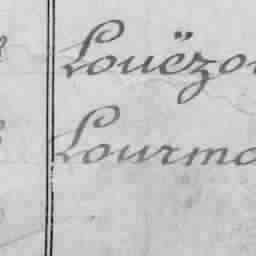 Louëzo
Lourma